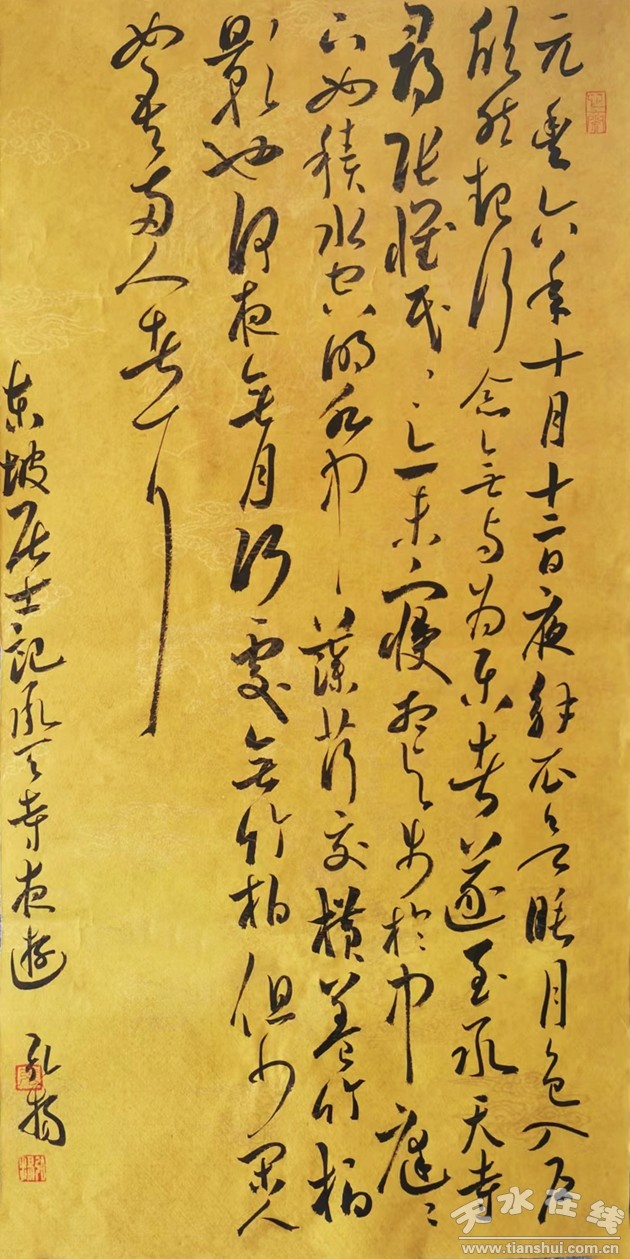 元豐六年十月十二日夜解衣欲睡月色入户
欣然起行念無与为乐者遂至承天寺
尋張懷民々亦未寢相与步於中庭々
下如積水空明水中藻荇交横蓋竹柏
影也何夜無月何處無竹柏但少閑人
如吾兩人者耳
东坡居士記承天寺夜遊 弘揚
天水在线
www.tianshui.com.cn